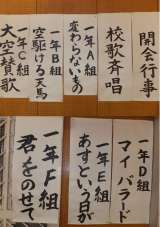 開会行事
校歌斉唱
一年A組
変わらないもの
一年B組
空駆ける天馬
一年C組
大空賛歌
一年D組
マイバラード
一年E組
あすという日が
一年F組
君をのせて